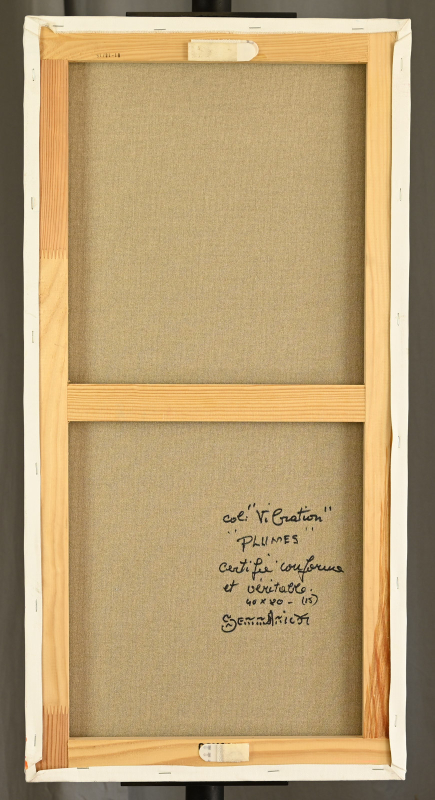 col: "Vibration"
"PLUMES"
certifié conforme
et véritable.
40 x 80 - (15)